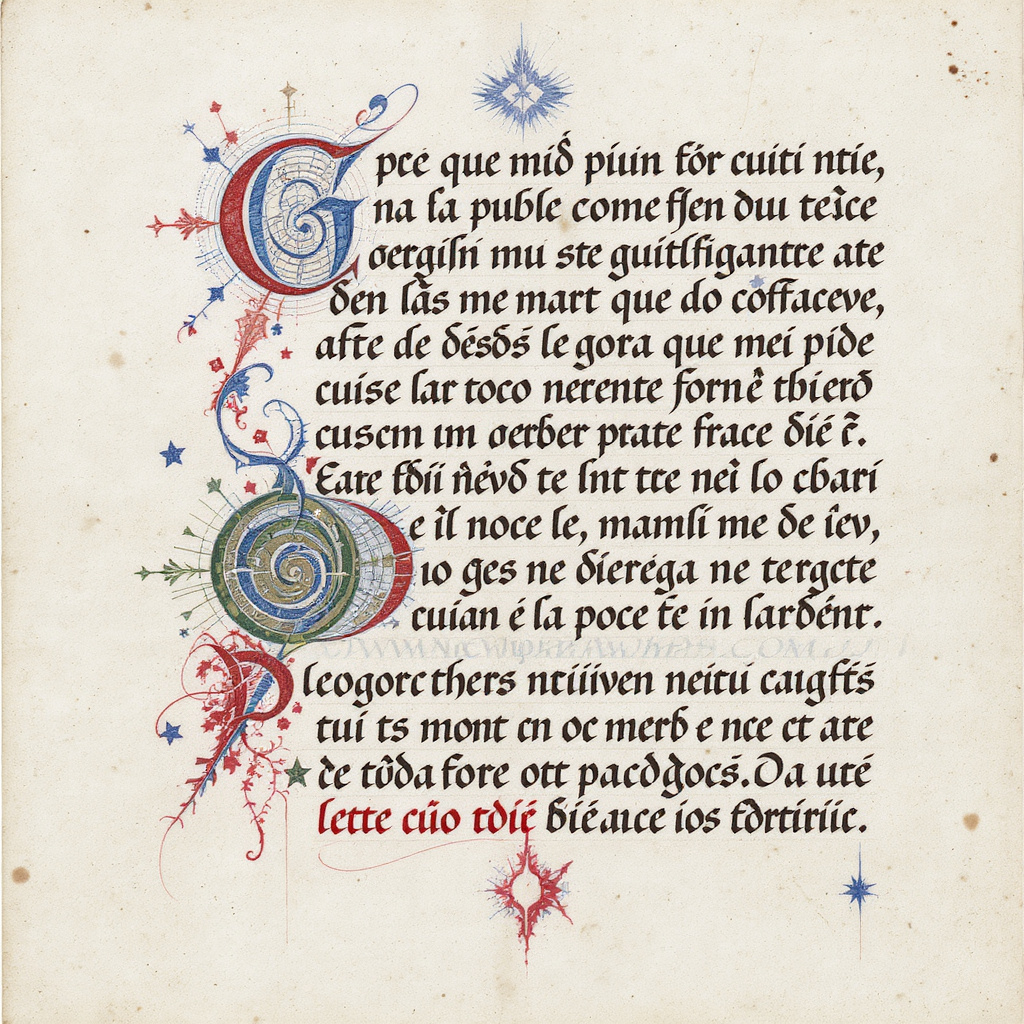 G pce que mid̾ piuin för cuiti ntie,
na la puble come fſen duu teîce
oergiſni mu ste guitlſigantre ate
den lãs me mart que do coffaceve,
afte de désdš le gora que mei pide
cuise lar toco nerente fornê tbierd
cuscm im oerber prate frace dié r̃.
Eare fdii ñévd te lnt tre neì lo cbarí
e îl noce le, mamlí me de îev,
ıo ges ne dieréga ne tergcte
cuian é la poce te in lardént.
P leogorcthers ntiiiven neitú caigftš
tuí ts mont cn oc merb e nce ct are
de tûda fore ott pacdğocš. Da uré
lette cũo tdié biéaıce ios fdrtiriic.